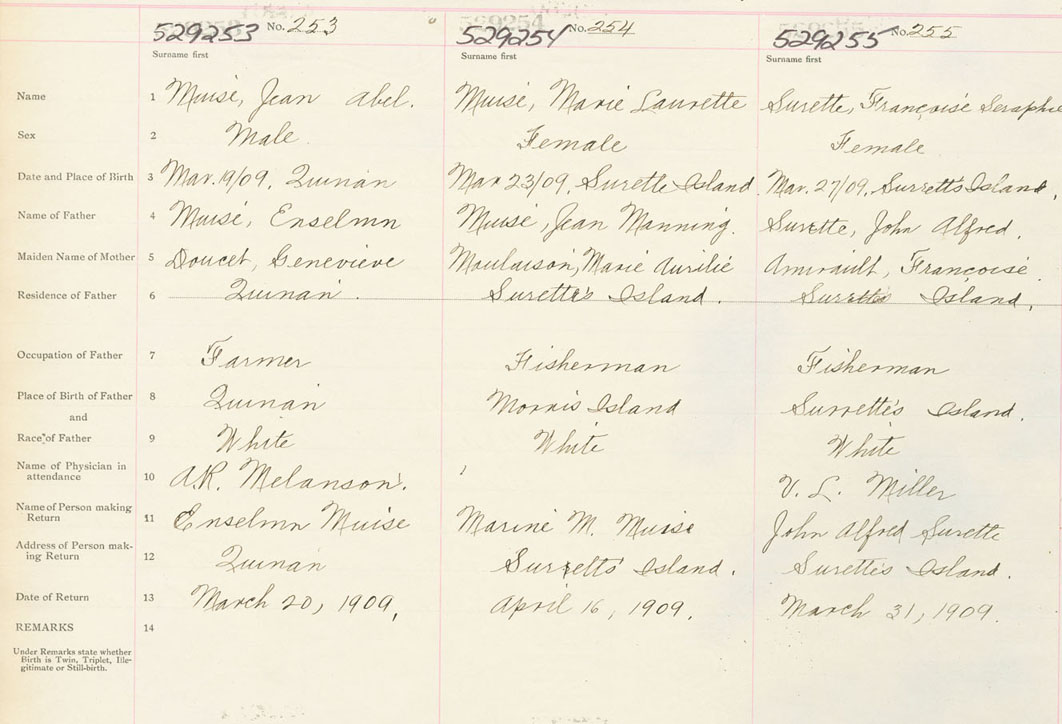 529253 No. 253 529254 No. 254 529255 No. 255
Surname first Surname first Surname first
Name 1 Muise, Jean Abel. Muise, Marie Laurette Surette, Françoise Seraphie
Sex 2 Male. Female Female
Date and Place of Birth 3 Mar. 19/09, Quinan Mar 23/09, Surette Island. Mar. 27/09, Surrett's Island,
Name of Father 4 Muise, Enselmn Muise, Jean Manning. Surette, John Alfred.
Maiden Name of Mother 5 Doucet, Genevieve Moulaison, Marie Aurilie Amirault, Françoise.
Residence of Father 6 Quinan. Surette's Island. Surette's Island,
Occupation of Father 7 Farmer Fisherman Fisherman
Place of Birth of Father 8 Quinan Morris Island Surrette's Island.
and
Race of Father 9 White White White
Name of Physician in
attendance 10 A.R. Melanson. V. L. Miller
Name of Person making
Return 11 Enselmn Muise Marine M. Muise John Alfred Surette
Address of Person mak-
ing Return 12 Quinan Surretts' Island. Surette's Island.
Date of Return 13 March 20, 1909, April 16, 1909. March 31, 1909.
REMARKS 14
Under Remarks state whether
Birth is Twin, Triplet, Ille-
gitimate or Still-birth.